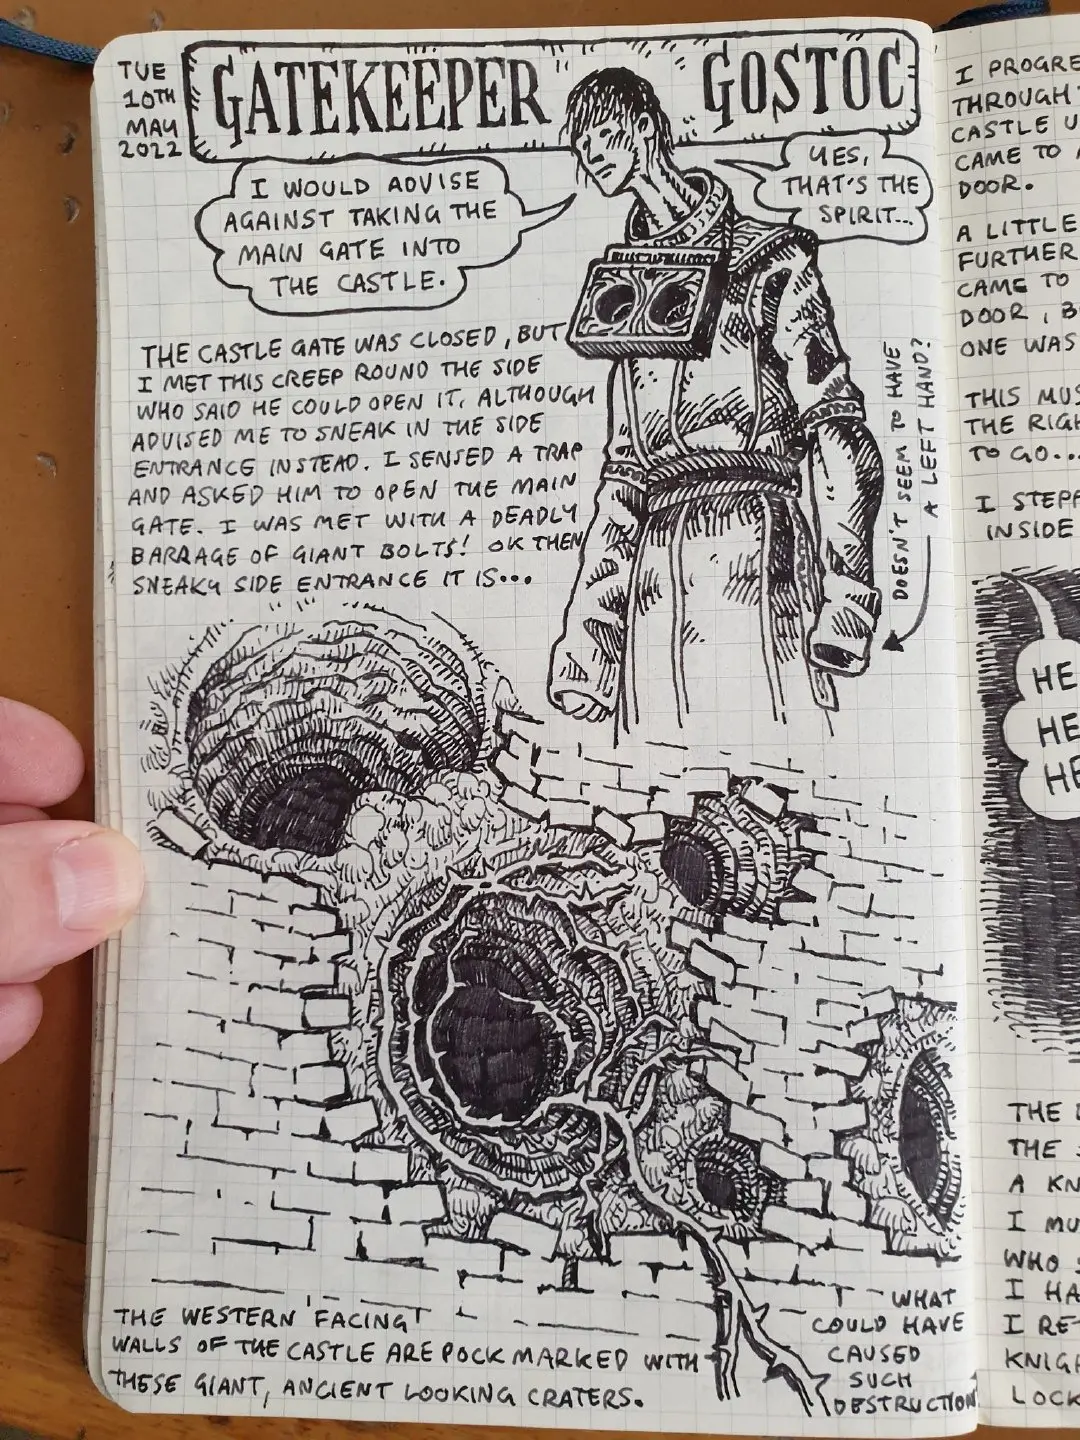 TUE
10TH
MAY
2022
GATEKEEPER GOSTOC
I WOULD ADVISE
AGAINST TAKING THE
MAIN GATE INTO
THE CASTLE.
YES,
THAT'S THE
SPIRIT...
THE CASTLE GATE WAS CLOSED, BUT
I MET THIS CREEP ROUND THE SIDE
WHO SAID HE COULD OPEN IT, ALTHOUGH
ADVISED ME TO SNEAK IN THE SIDE
ENTRANCE INSTEAD. I SENSED A TRAP
AND ASKED HIM TO OPEN THE MAIN
GATE. I WAS MET WITH A DEADLY
BARRAGE OF GIANT BOLTS! OK THEN
SNEAKY SIDE ENTRANCE IT IS...
DOESN'T SEEM TO HAVE
A LEFT HAND?
THE WESTERN FACING
WALLS OF THE CASTLE ARE POCK MARKED WITH
THESE GIANT, ANCIENT LOOKING CRATERS.
WHAT
COULD HAVE
CAUSED
SUCH
DESTRUCTION
I PROGRE
THROUGH
CASTLE U
CAME TO
DOOR.
A LITTLE
FURTHER
CAME TO
DOOR, B
ONE WAS
THIS MUS
THE RIGH
TO GO...
I STEPP
INSIDE
HE
HE
HE
THE
THE
A KN
I MU
WHO
I HA
I RE-
KNIGH
LOCK